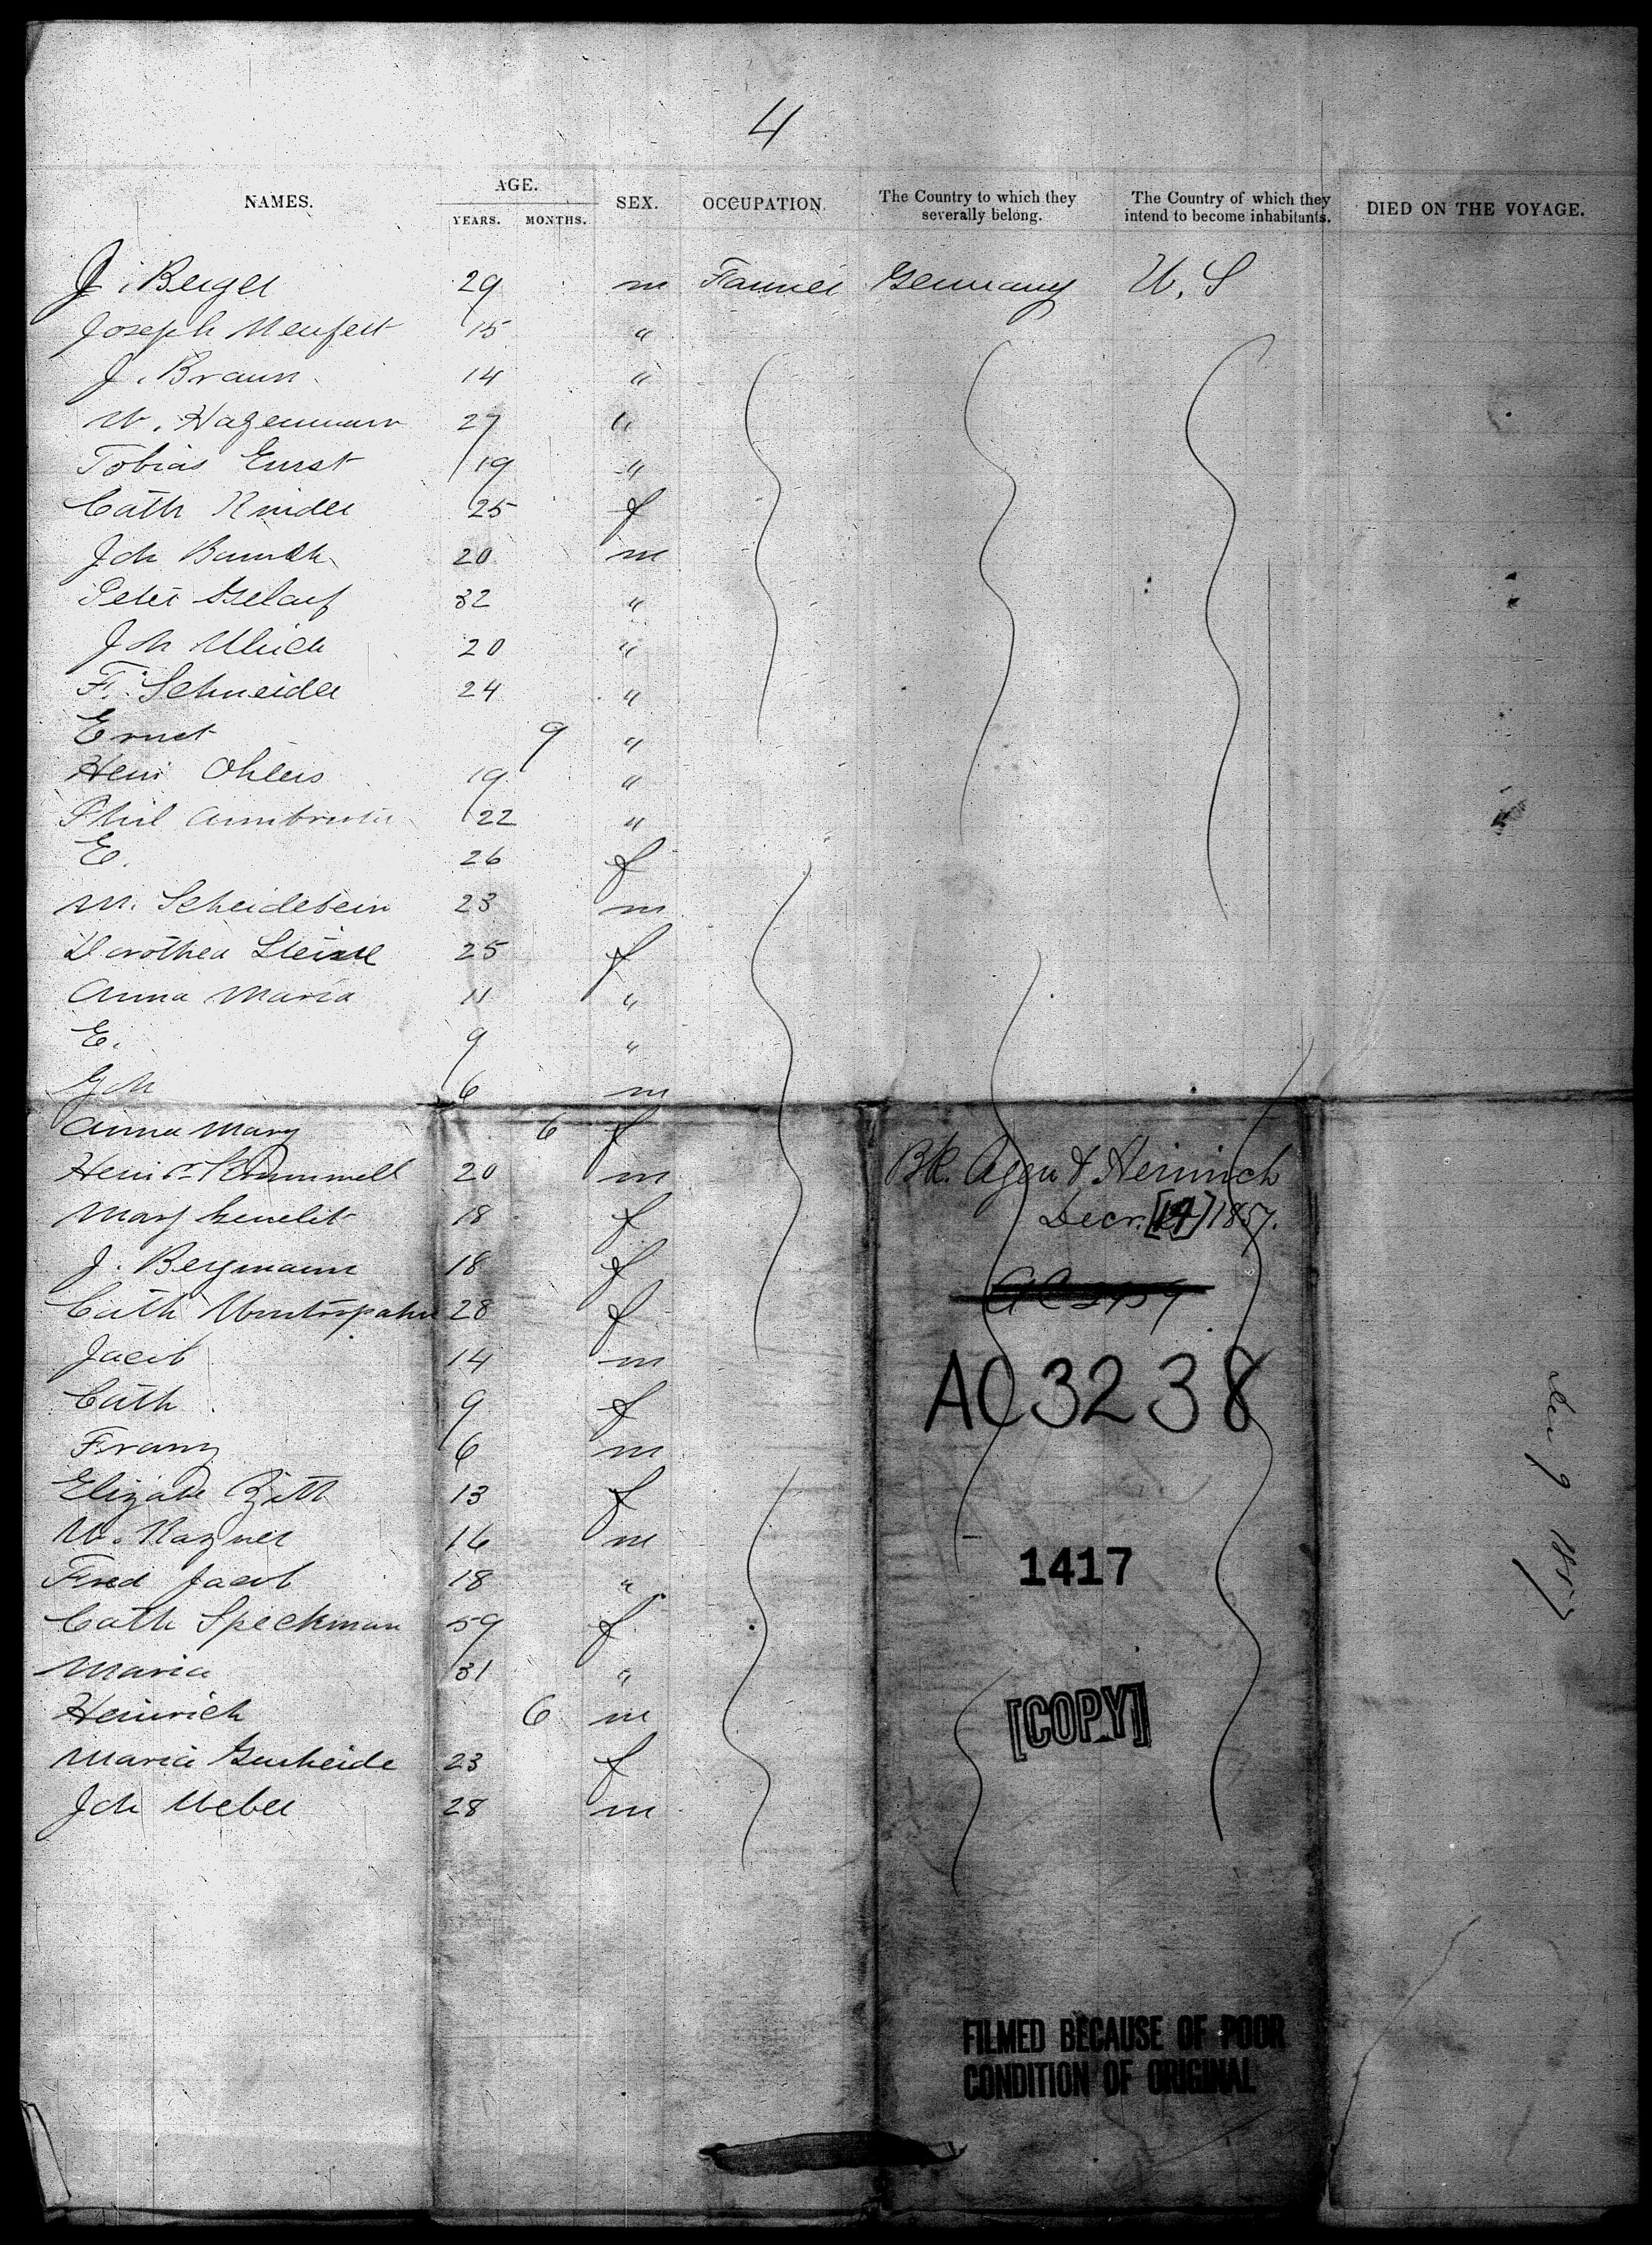 4
NAMES. AGE. SEX. OCCUPATION. The Country to which they severally belong. The Country of which they intend to become inhabitants. DIED ON THE VOYAGE.
YEARS. MONTHS.
J. Berger 29 m Farmer Germany U. S
Joseph Neufert 15 "
J. Braun 14 "
W. Hagemann 27 "
Tobias Ernst 19 "
Cath Kinder 25 f
Joh 20 m
Peter 32 "
Joh Ulrich 20 "
F. Schneider 24 "
Ernst 9 "
Heni Ohlers 19 "
Phil 22 "
E. 26 f
M. Scheidebein 23 m
Dorothea 25 f
Anna Maria 11 "
E. 9 "
Joh 6 m
Anna Mary 6 f
Heni Krummell 20 m
Mary 18 f
J. Bergmann 18 f
Cath 28 f
Jacob 14 m
Cath 9 f
Franz 6 m
Elizabe Zitt 13 f
W. Wagner 16 m
Fred Jacob 18 "
Cath Speckman 59 f
Maria 31 "
Heinrich 6 m
Maria 23 f
Joh Weber 28 m
Bk. Agen & Heinrich
Decr. [14] 1857.
AC 3238
1417
[COPY]
FILMED BECAUSE OF POOR
CONDITION OF ORIGINAL
1857